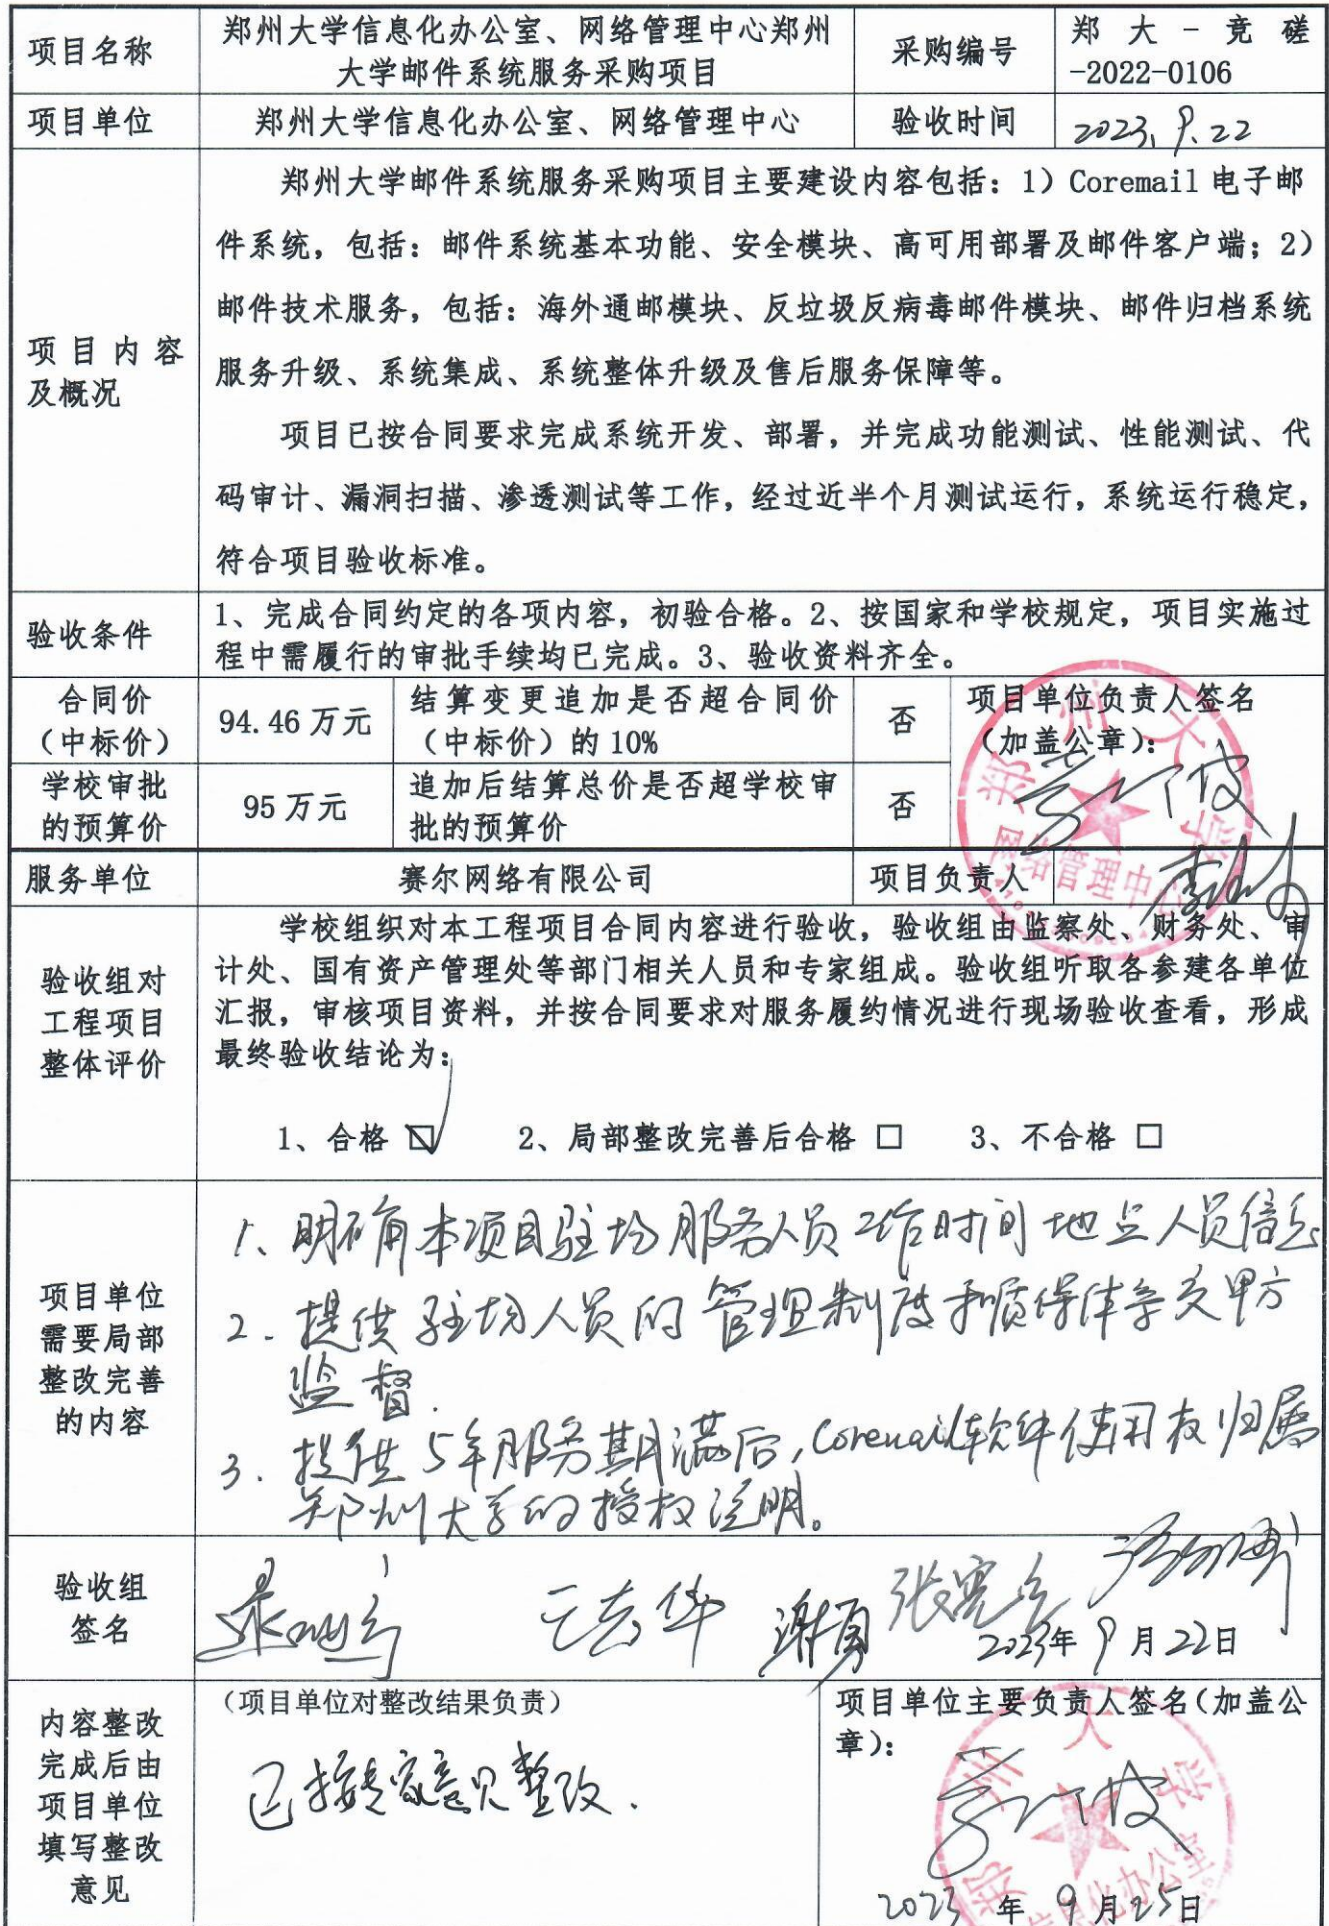 项目名称
郑州大学信息化办公室、网络管理中心郑州
大学邮件系统服务采购项目
采购编号
郑大-竞磋
-2022-0106
项目单位
郑州大学信息化办公室、网络管理中心
验收时间
2023.9.22
项目内容
及概况
郑州大学邮件系统服务采购项目主要建设内容包括：1）Coremail 电子邮
件系统，包括：邮件系统基本功能、安全模块、高可用部署及邮件客户端；2）
邮件技术服务，包括：海外通邮模块、反垃圾反病毒邮件模块、邮件归档系统
服务升级、系统集成、系统整体升级及售后服务保障等。
项目已按合同要求完成系统开发、部署，并完成功能测试、性能测试、代
码审计、漏洞扫描、渗透测试等工作，经过近半个月测试运行，系统运行稳定，
符合项目验收标准。
验收条件
1、完成合同约定的各项内容，初验合格。2、按国家和学校规定，项目实施过
程中需履行的审批手续均已完成。3、验收资料齐全。
合同价
（中标价）
94.46 万元
结算变更追加是否超合同价
（中标价）的 10%
否
项目单位负责人签名
（加盖公章）：
学校审批
的预算价
95 万元
追加后结算总价是否超学校审
批的预算价
否
郑州大学
网络管理中心
服务单位
赛尔网络有限公司
项目负责人
验收组对
工程项目
整体评价
学校组织对本工程项目合同内容进行验收，验收组由监察处、财务处、审
计处、国有资产管理处等部门相关人员和专家组成。验收组听取各参建各单位
汇报，审核项目资料，并按合同要求对服务履约情况进行现场验收查看，形成
最终验收结论为：
1、合格 ☑ 2、局部整改完善后合格 □ 3、不合格 □
项目单位
需要局部
整改完善
的内容
1、明确本项目驻场服务人员工作时间地点人员信息
2．提供驻场人员的管理制度和质保体系交甲方
监督．
3．提供5年服务期满后，Coremail软件使用权归属
郑州大学的授权证明。
验收组
签名
王志华
谢勇
2023年9月22日
内容整改
完成后由
项目单位
填写整改
意见
（项目单位对整改结果负责）
已按专家意见整改．
项目单位主要负责人签名（加盖公
章）：
郑州大学
信息化办公室
2023年9月25日